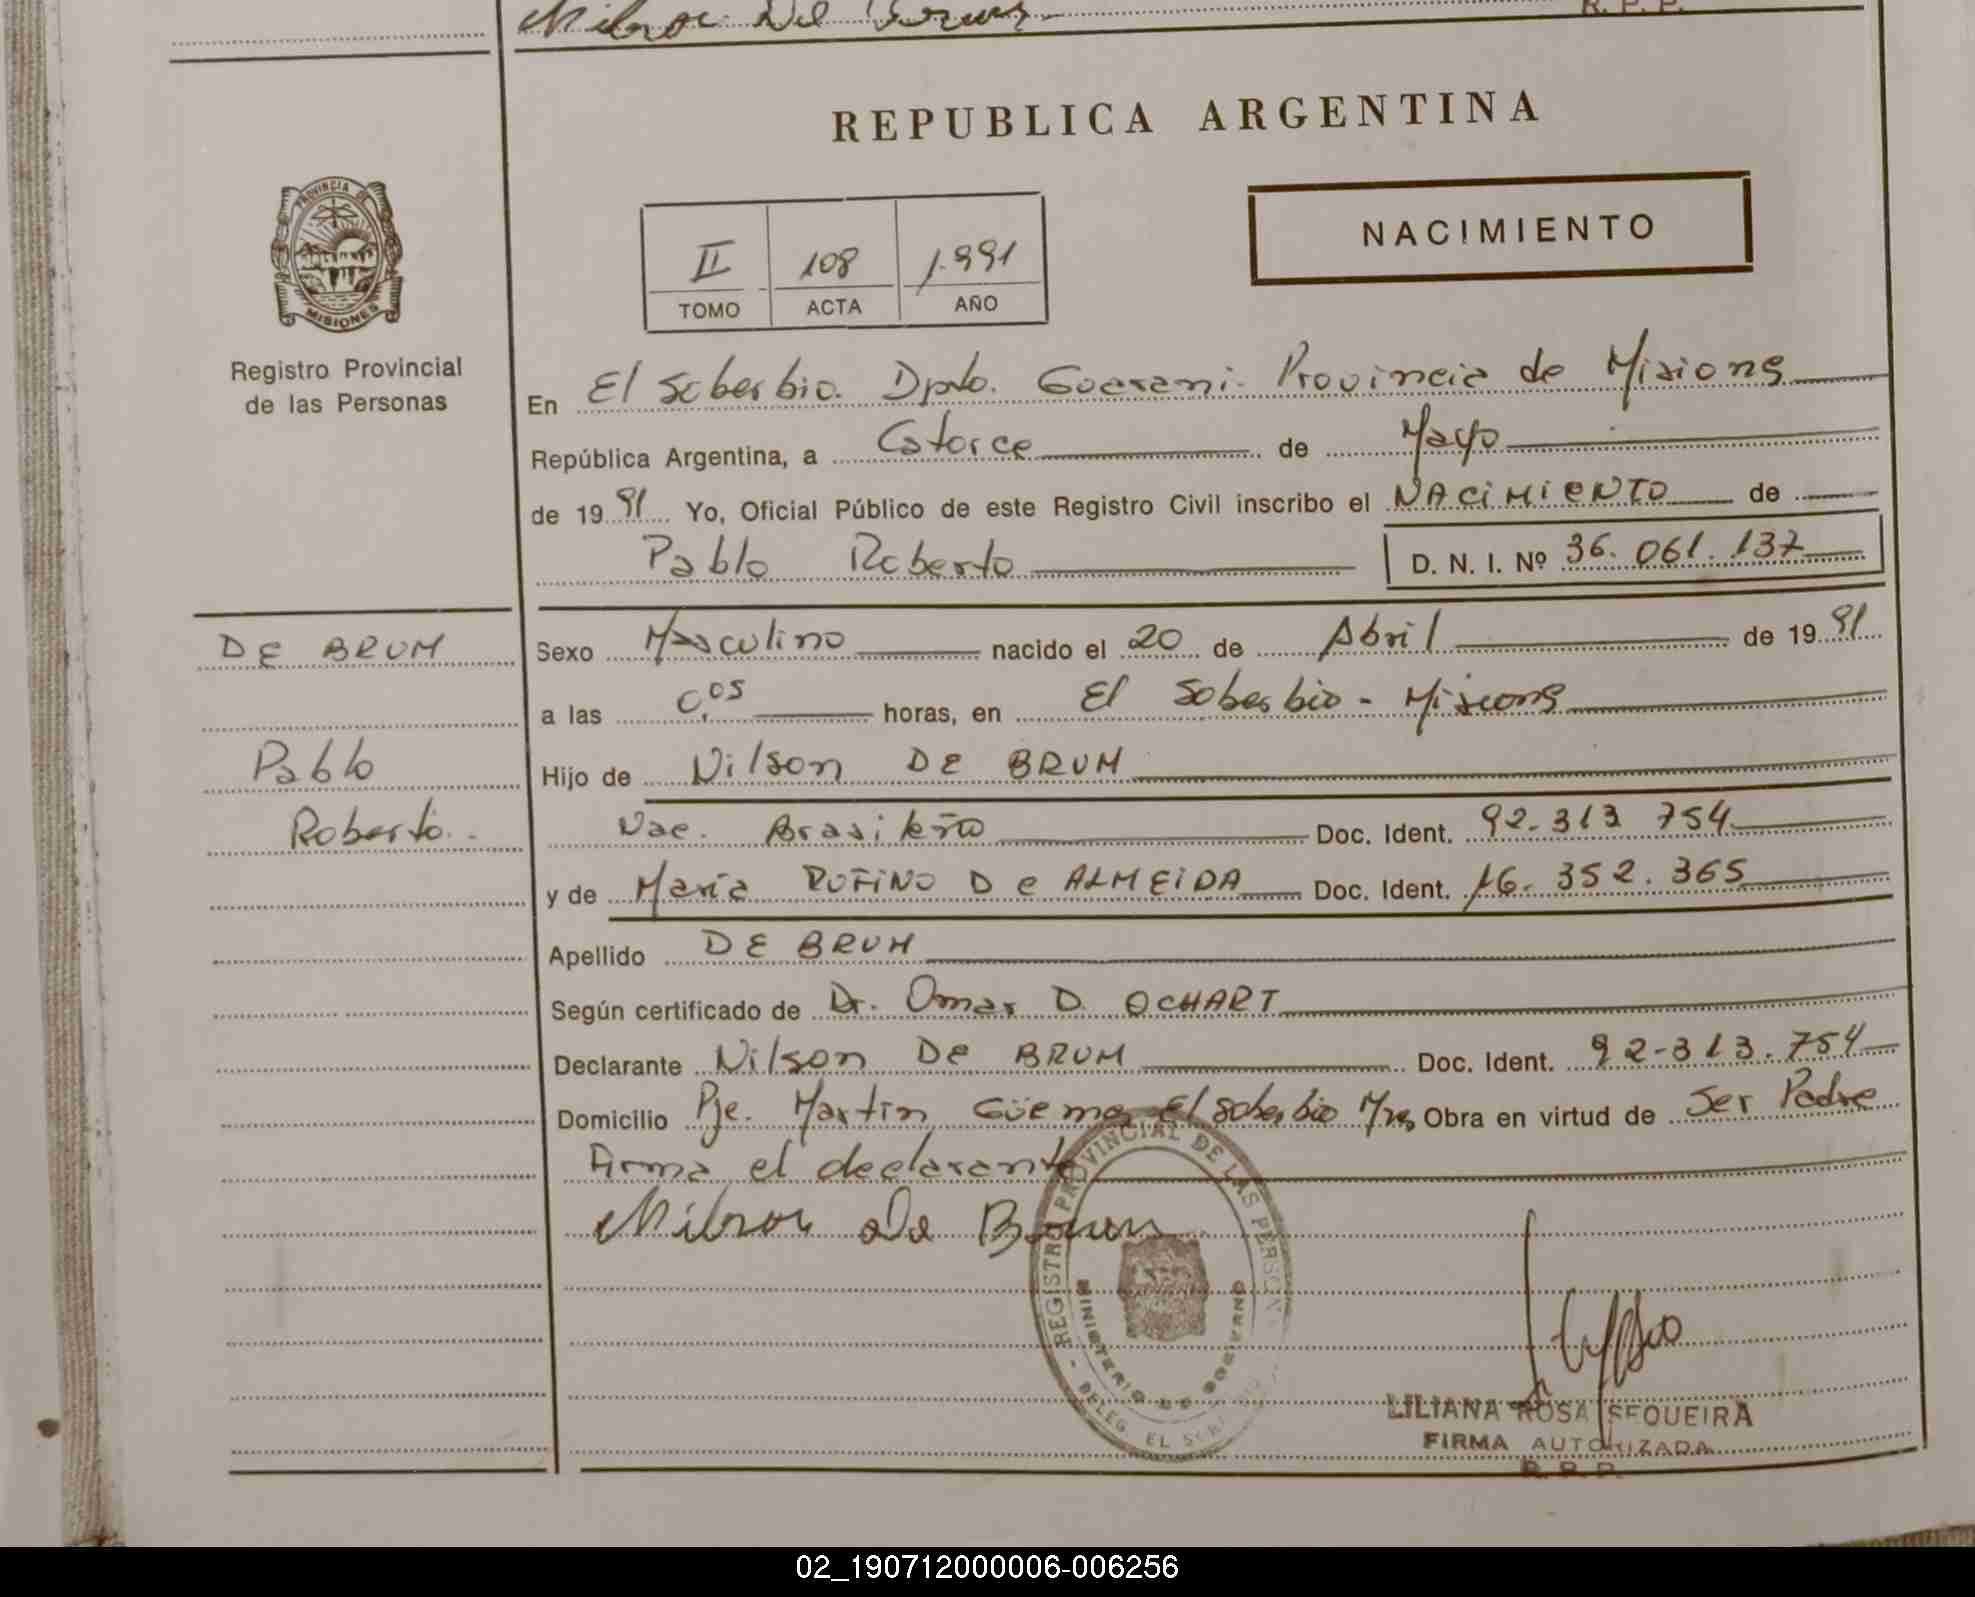 R. P. P.
REPUBLICA ARGENTINA
PROVINCIA DE
MISIONES
Registro Provincial
de las Personas
II 108 1.991
TOMO ACTA AÑO
NACIMIENTO
En El Soberbio. Dpto. Guarani. Provincia de Misiones
República Argentina, a Catorce de Mayo
de 1991 Yo, Oficial Público de este Registro Civil inscribo el NACIMIENTO de
Pablo Roberto D. N. I. Nº 36.061.137
DE BRUM
Pablo
Roberto.
Sexo Masculino nacido el 20 de Abril de 1991
a las 0,05 horas, en El Soberbio - Misiones
Hijo de Nilson DE BRUM
Nac. Brasileño Doc. Ident. 92.313 754
y de Maria RUFINO De ALMEIDA Doc. Ident. 16.352.365
Apellido DE BRUM
Según certificado de Dr. Omar D. OCHART
Declarante Nilson De BRUM Doc. Ident. 92-313.754
Domicilio Pje. Martin Güemes El Soberbio Mnes Obra en virtud de Ser Padre
Firma el declarante
Nilson De Brum
REGISTRO PROVINCIAL DE LAS PERSON
MINISTERIO DE GOBIERNO
DELEG. EL
LILIANA ROSA SEQUEIRA
FIRMA AUTORIZADA
R. P. P.
02_190712000006-006256